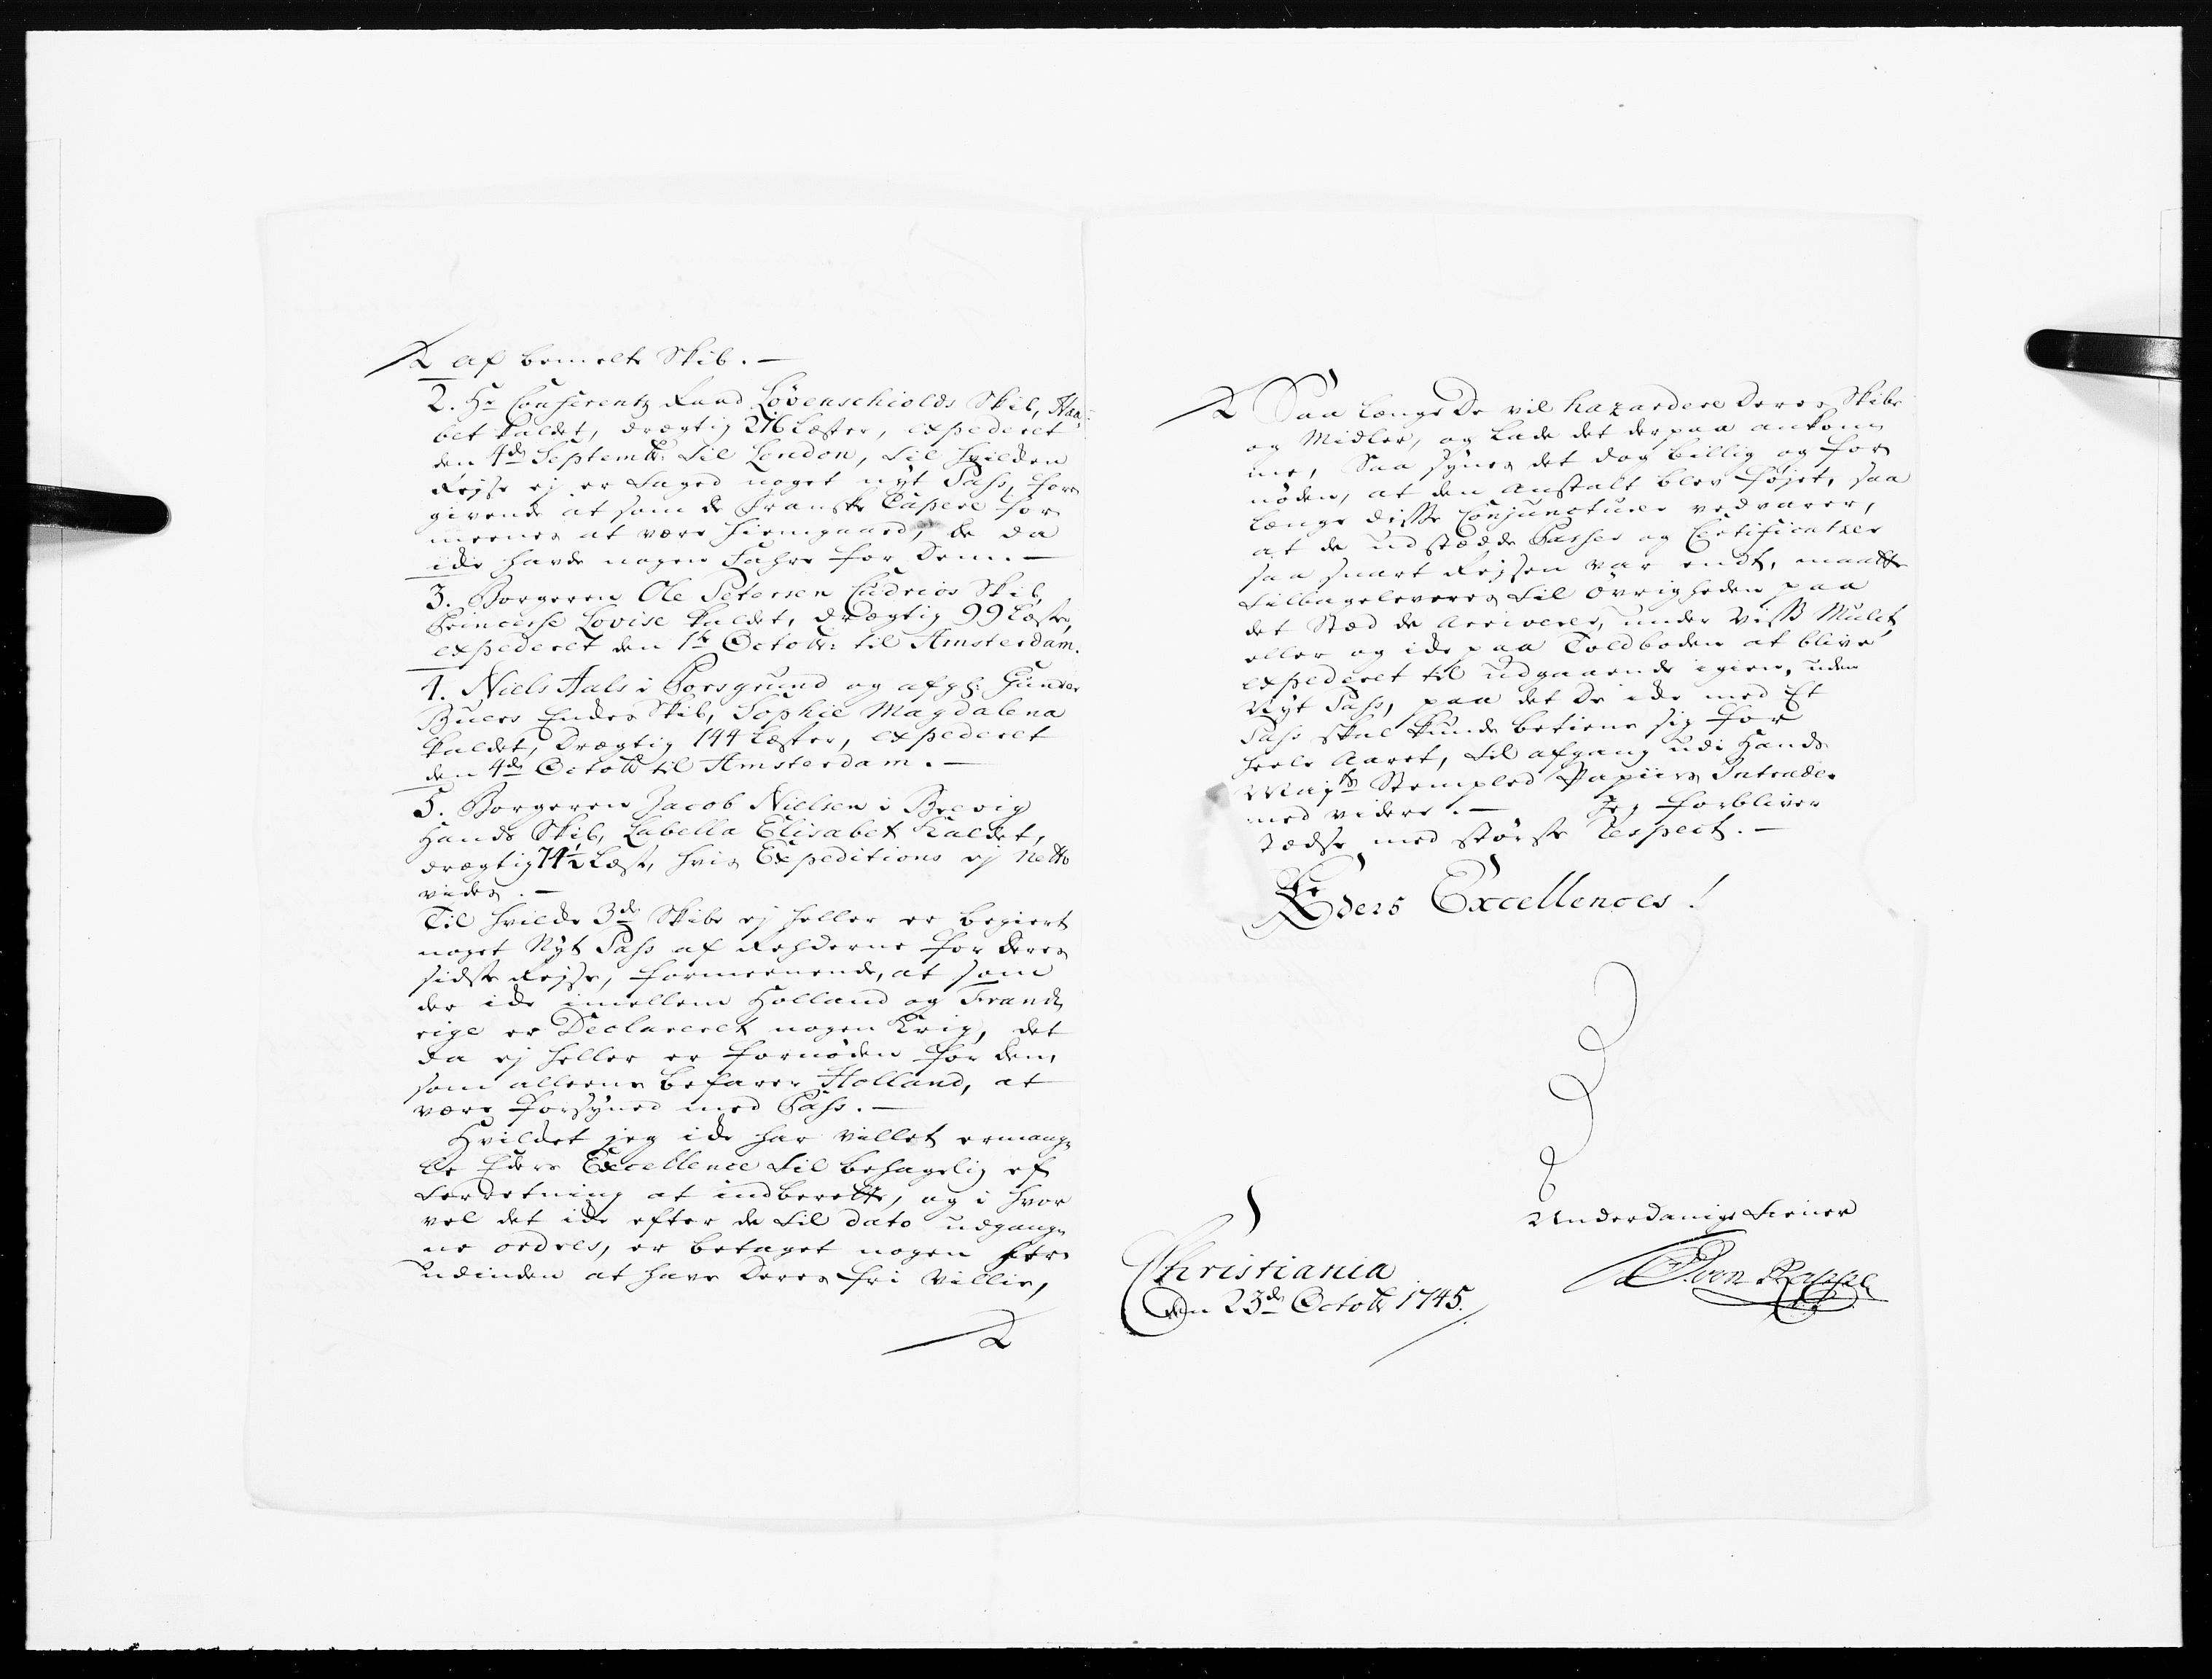 af bemelte Skib. —
2. Hr Conferentz Raad Løvenschiolds Skib, Haa-
bet kaldet, drægtig 276 Læster, expederet
den 4de Septembr: til London, til hvilken
Reyse ej er taged noget nÿt Pass, fore
givende at som de Franske Capere for
meenes at være hiemgaaed, de da
icke havde nogen Fahre for Dem. —
3. Borgeren Ole Petersen Cudrios Skib,
Princesse Lovise kaldet, drægtig 99 Læster,
expederet den 1te Octobr: til Amsterdam.
4. Niels Aals i Porsgrund og afg: Gunder
Buers Enkes Skib, Sophie Magdalena
kaldet, drægtig 144 Læster, expederet
den 4de Octobr til Amsterdam. —
5. Borgeren Jacob Nielsen i Brevig
Hands Skib, Labella Elisabet Kaldet,
drægtig 74½ Læst, hvis Expeditions ej netto
vides. —
Til hvilcke 3de Skibe ej heller er begiert
noget Nÿt Pass af Rehderne for deres
sidste Reyse, formeenende, at som
der icke imellem Holland og Franck-
rige er Declareret nogen Krig, det
da ej heller er fornøden for dem,
som alleene befarer Holland, at
være forsÿned med Pass. —
Hvilcket jeg icke har villet ermang-
le Eders Excellence til behagelig ef
terretning at indberette, og i hvor
vel det icke efter de til dato udgang-
ne ordres, er betaget nogen her
udinden at have deres frie Villie,
Saa længe De vil hazardere deres Skibe
og Midler, og lade det derpaa ankom
me, Saa sÿnes det dog billig og for
nøden, at den Anstalt blev føjet, saa
længe disse Conjuncturer vedvarer,
at de udstædde Passer og Certificatzer
saa snart Rejsen var endt, maatte
tilbageleveres til Øvrigheden paa
det Stæd de Arriverer, under Viss Mulct,
eller og icke paa Toldboden at blive
expederet til udgaaende igien, uden
Nÿt Pass, paa det De icke med Et
Pass skal kunde betiene sig for
heele Aaret, til afgang udi Hands
Mayts Stempled Papiirs Intrader
med videre. — Jeg forbliver
stedse med største Respect. —
Eders Excellences!
Underdanige tiener
Christiania
den 23de Octobr 1745.
von Rappe